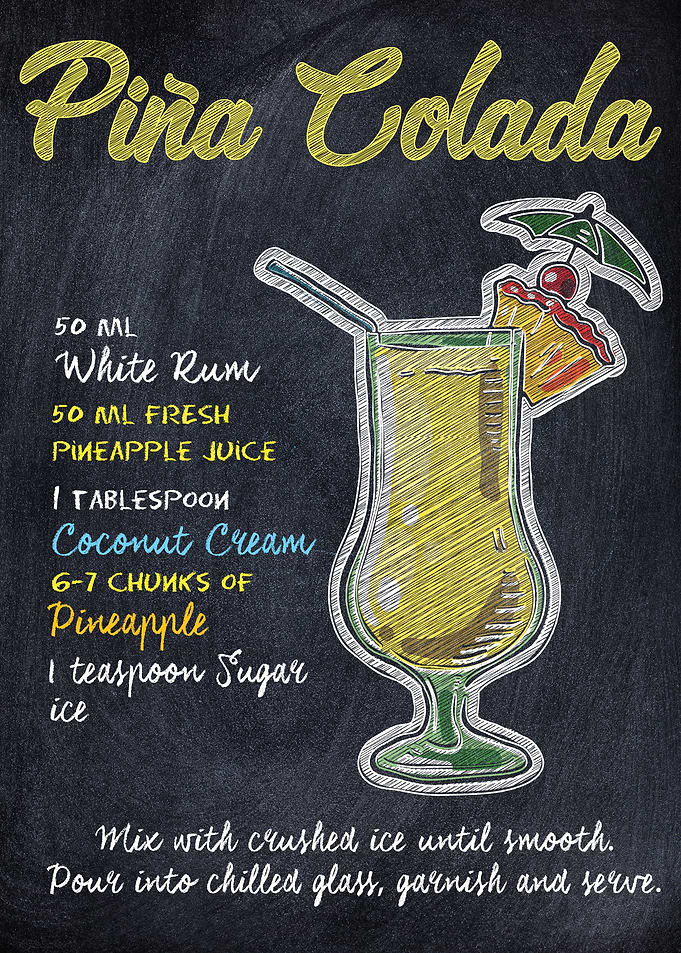 Piña Colada
50 ML
White Rum
50 ML FRESH
PINEAPPLE JUICE
1 TABLESPOON
Coconut Cream
6-7 CHUNKS OF
Pineapple
1 teaspoon Sugar
ice
Mix with crushed ice until smooth.
Pour into chilled glass, garnish and serve.